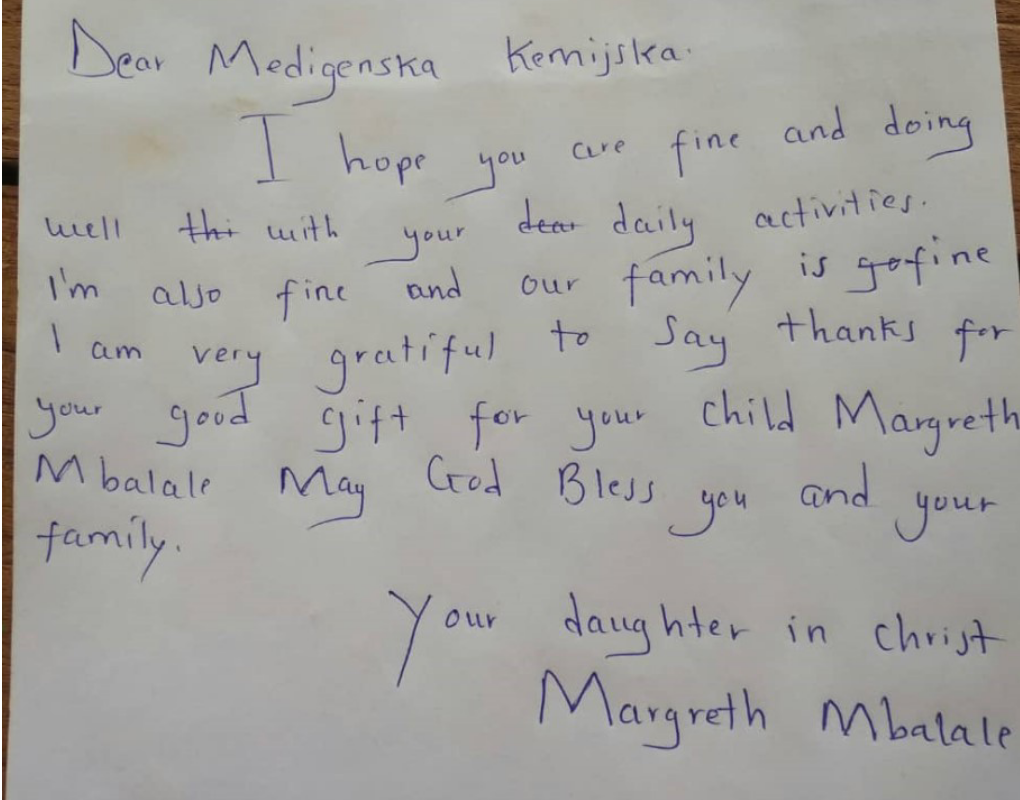 Dear Medigenska Kemijska.
I hope you are fine and doing
well thi with your dear daily activities.
I'm also fine and our family is go fine
I am very gratiful to say thanks for
your good gift for your child Margreth
Mbalale May God Bless you and your
family.
Your daughter in christ
Margreth Mbalale